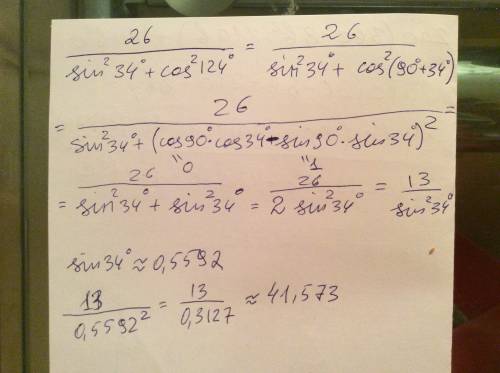 26 / (sin²34° + cos²124°) = 26 / (sin²34° + cos²(90°+34°)
= 26 / (sin²34° + (cos90°·cos34° - sin90°·sin34°)² =
"0 "1
= 26 / (sin²34° + sin²34°) = 26 / (2 sin²34°) = 13 / sin²34°
sin34° ≈ 0,5592
13 / 0,5592² = 13 / 0,3127 ≈ 41,573